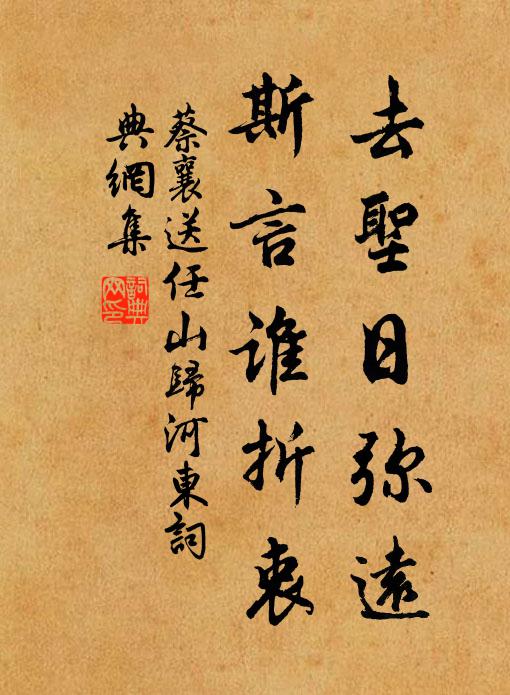 去聖日弥遠
斯言誰折衷
蔡襄送任山歸河東詞
典網集
詞典
网印